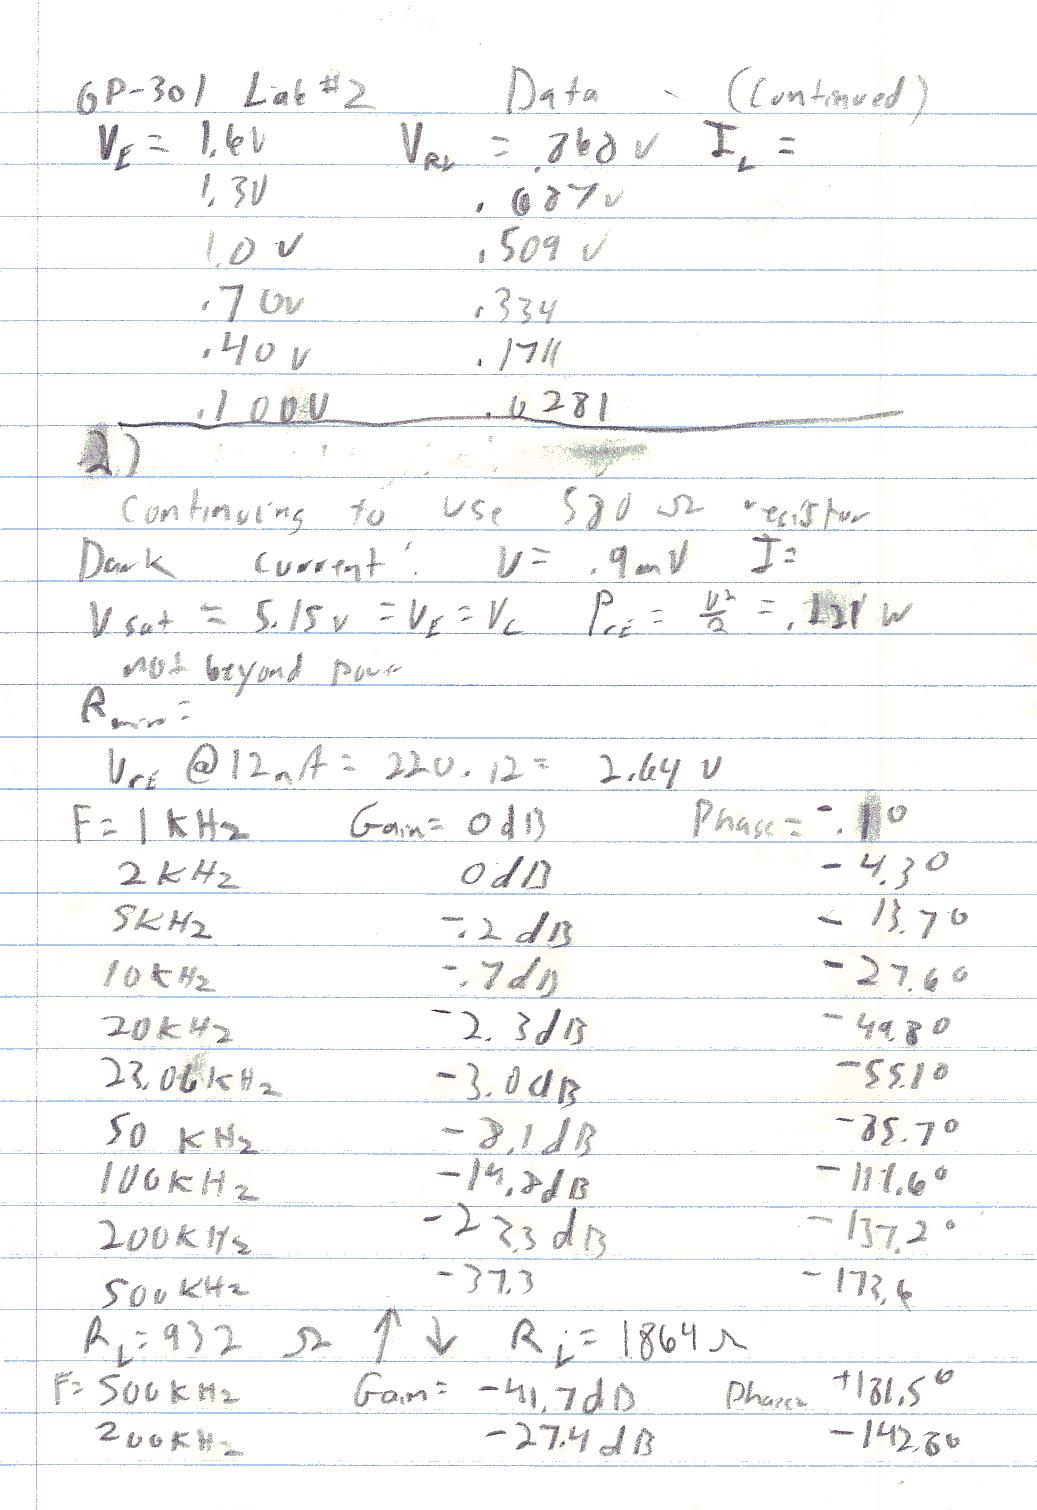 GP-301 Lab #2 Data (Continued)
V_E = 1.6V V_RL = .868 V I_L =
1.3V .687 V
1.0 V .509 V
.70V .334
.40 V .1711
.100V .0281
2)
Continuing to use 580 Ω resistor
Dark Current: V = .9mV I=
V sat = 5.15v = V_E = V_C P_CE = V²/Ω = .121 W
not beyond power
R_min =
V_CE @ 12mA = 220 . 12 = 2.64 V
F= 1 KHz Gain= 0dB Phase = -.1°
2 KHz 0dB -4.3°
5KHz -.2 dB - 13.7°
10KHz -.7dB -27.6°
20KHz -2.3dB -49.8°
23.06KHz -3.0dB -55.1°
50 KHz -8.1dB -85.7°
100KHz -14.8dB -111.6°
200KHz -23.3 dB -137.2°
500KHz -37.3 -173.6
R_L = 932 Ω ↑ ↓ R_L = 1864Ω
F= 500KHz Gain= -41.7dB Phase= +181.5°
200KHz -27.4 dB -142.8°